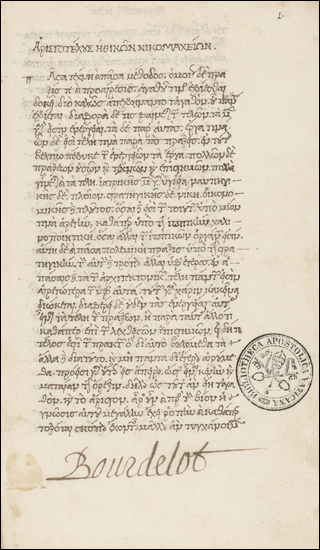 1.
ἀριστοτέλους ἠθικῶν νικομαχείων.
ᾶσα τέχνη καὶ πᾶσα μέθοδος, ὁμοίως δὲ πρᾶ
ξίς τε καὶ προαίρεσις, ἀγαθοῦ τινὸς ἐφίεσθαι
δοκεῖ. διὸ καλῶς ἀπεφήναντο τἀγαθὸν, οὗ πάντ'
ἐφίεται. διαφορὰ δέ τις φαίνεται τῶν τελῶν. τὰ μὲν
γάρ εἰσιν ἐνέργειαι. τὰ δὲ παρ' αὐτὰς ἔργα τινά.
ὧν δέ εἰσι τέλη τινὰ παρὰ τὰς πράξεις, ἐν τούτοις
βελτίω πέφυκε τῶν ἐνεργειῶν τὰ ἔργα. πολλῶν δὲ
πράξεων οὐσῶν καὶ τεχνῶν καὶ ἐπιστημῶν, πολλὰ
γίνεται καὶ τὰ τέλη. ἰατρικῆς μὲν γὰρ ὑγίεια. ναυπηγι
κῆς δὲ, πλοῖον. στρατηγικῆς δὲ νίκη. οἰκονο
μικῆς δὲ πλοῦτος. ὅσαι δ' εἰσὶ τῶν τοιούτων ὑπὸ μίαν
τινὰ ἀρετὴν, καθάπερ ὑπὸ τὴν ἱππικὴν, χαλι
νοποιητικὴ, καὶ ὅσαι ἄλλαι τῶν ἱππικῶν ὀργάνων εἰσίν.
αὕτη δὲ καὶ πᾶσα πολεμικὴ πρᾶξις ὑπὸ τὴν στρα
τηγικήν. τὸν αὐτὸν δὴ τρόπον ἄλλαι ὑφ' ἑτέρας. ἐν ἁ
πάσαις δὲ τὰ τῶν ἀρχιτεκτονικῶν τέλη πάντων ἐστὶν
αἱρετώτερα τῶν ὑφ' αὑτά. τούτων γὰρ χάριν κἀκεῖνα
διώκεται. διαφέρει δὲ οὐδὲν τὰς ἐνεργείας αὐτὰς
εἶναι τὰ τέλη τῶν πράξεων, ἢ παρὰ ταύτας ἄλλο τι
καθάπερ ἐπὶ τῶν λεχθεισῶν ἐπιστημῶν. εἰ δή τι
τέλος ἐστὶ τῶν πρακτῶν ὃ δι' αὑτὸ βουλόμεθα τὰ
ἄλλα δὲ διὰ τοῦτο, καὶ μὴ πάντα δι' ἕτερον αἱρούμε
θα. πρόεισι γὰρ οὕτω γ' εἰς ἄπειρον. ὥστ' εἶναι κενὴν καὶ
ματαίαν τὴν ὄρεξιν. δῆλον ὡς τοῦτ' ἂν εἴη τἀγα
θόν. καὶ τὸ ἄριστον. ἆρ' οὖν καὶ πρὸς τὸν βίον ἡ
γνῶσις αὐτοῦ μεγάλην ἔχει ῥοπὴν καὶ καθάπερ
τοξόται σκοπὸν ἔχοντες μᾶλλον ἂν τυγχάνοιμεν
BIBLIOTHECA APOSTOLICA VATICANA
Bourdelot